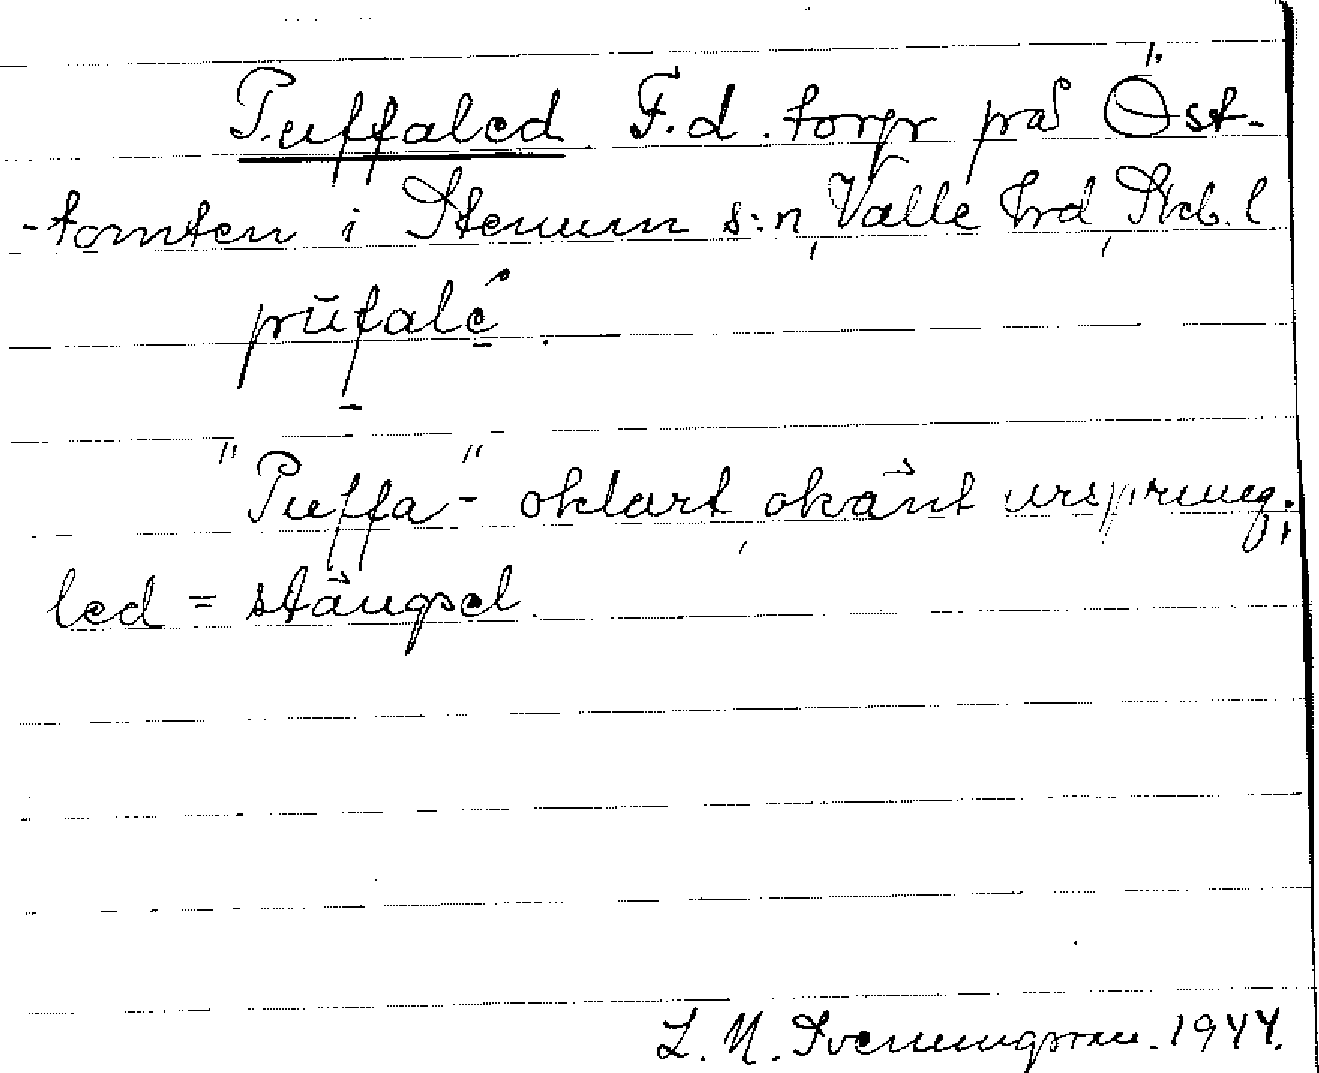 Puffaled F.d. torp på Öst-
-tomten i Stenum s:n, Valle hrd, Skb. l
pŭfalé
"Puffa-" oklart, okänt ursprung;
led = stängsel.
L. M. Svenungsson. 1944.